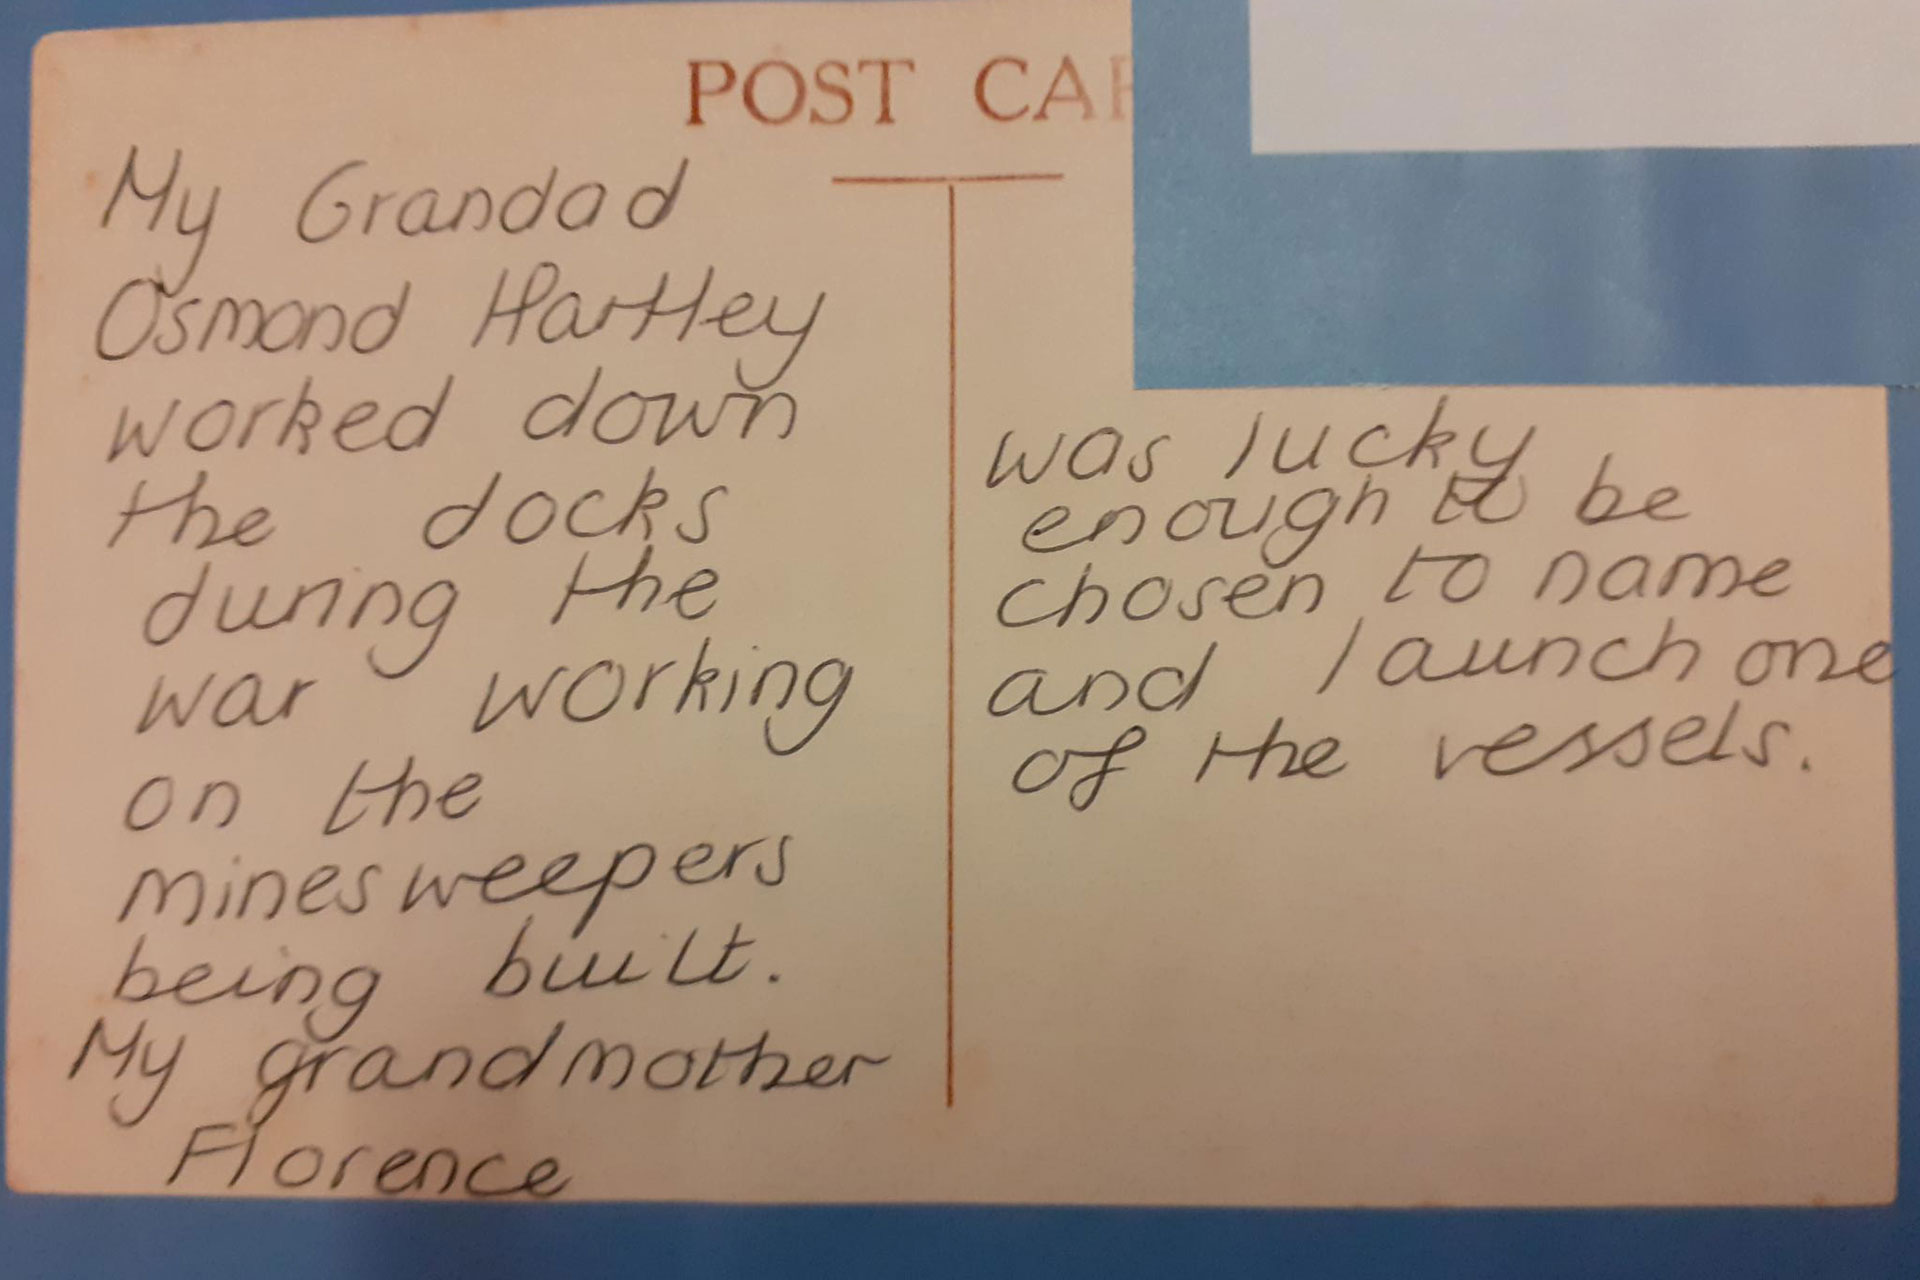 POST CAR
My Grandad
Osmond Hartley
worked down
the docks
during the
war working
on the
minesweepers
being built.
My grandmother
Florence
was lucky
enough to be
chosen to name
and launch one
of the vessels.